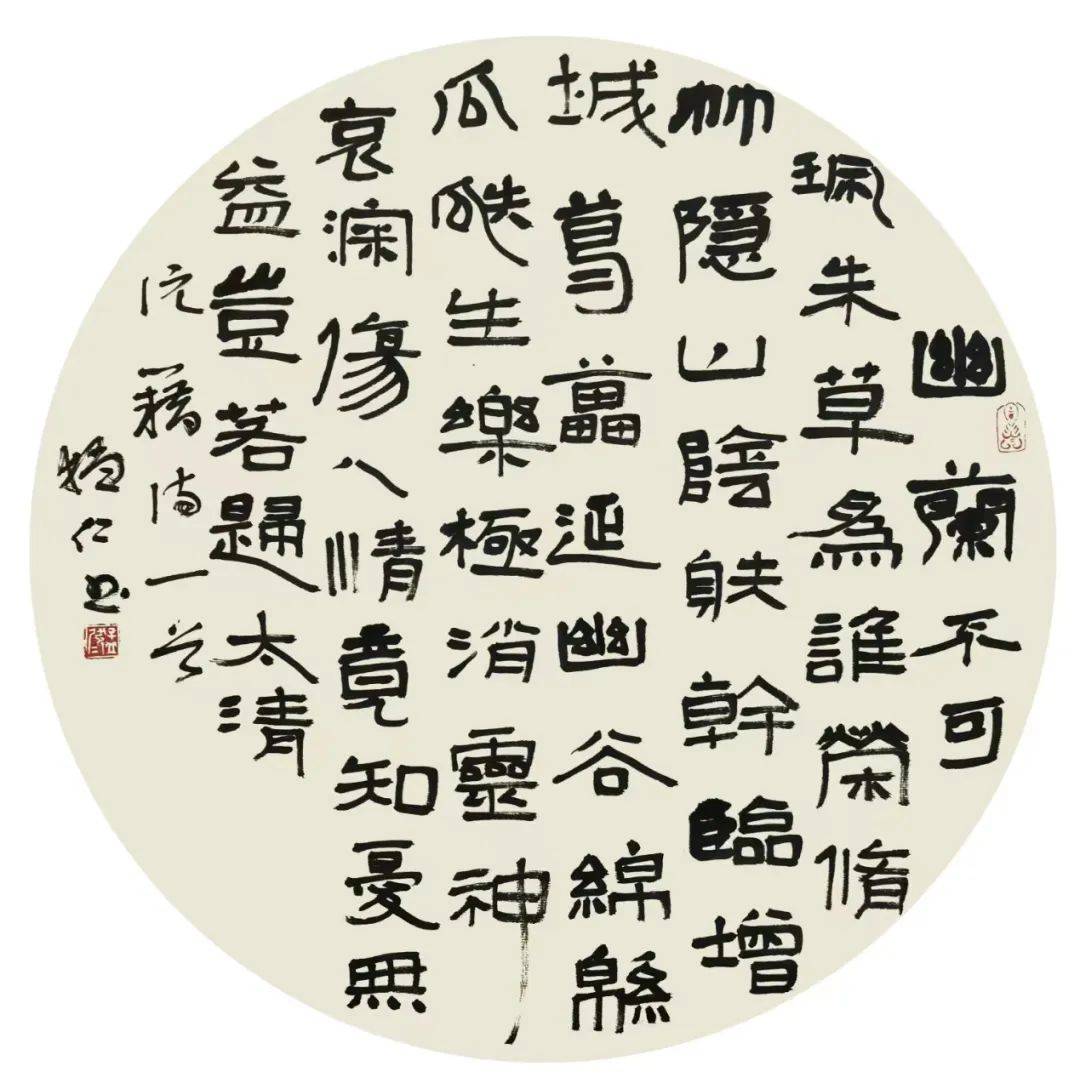 幽蘭不可
珮朱草為誰榮脩
竹隱山陰䠶幹臨增
城葛藟延幽谷綿緜
瓜瓞生樂極消靈神
哀深傷人情竟知憂無
益豈若歸太清
阮籍詩一首
仁書